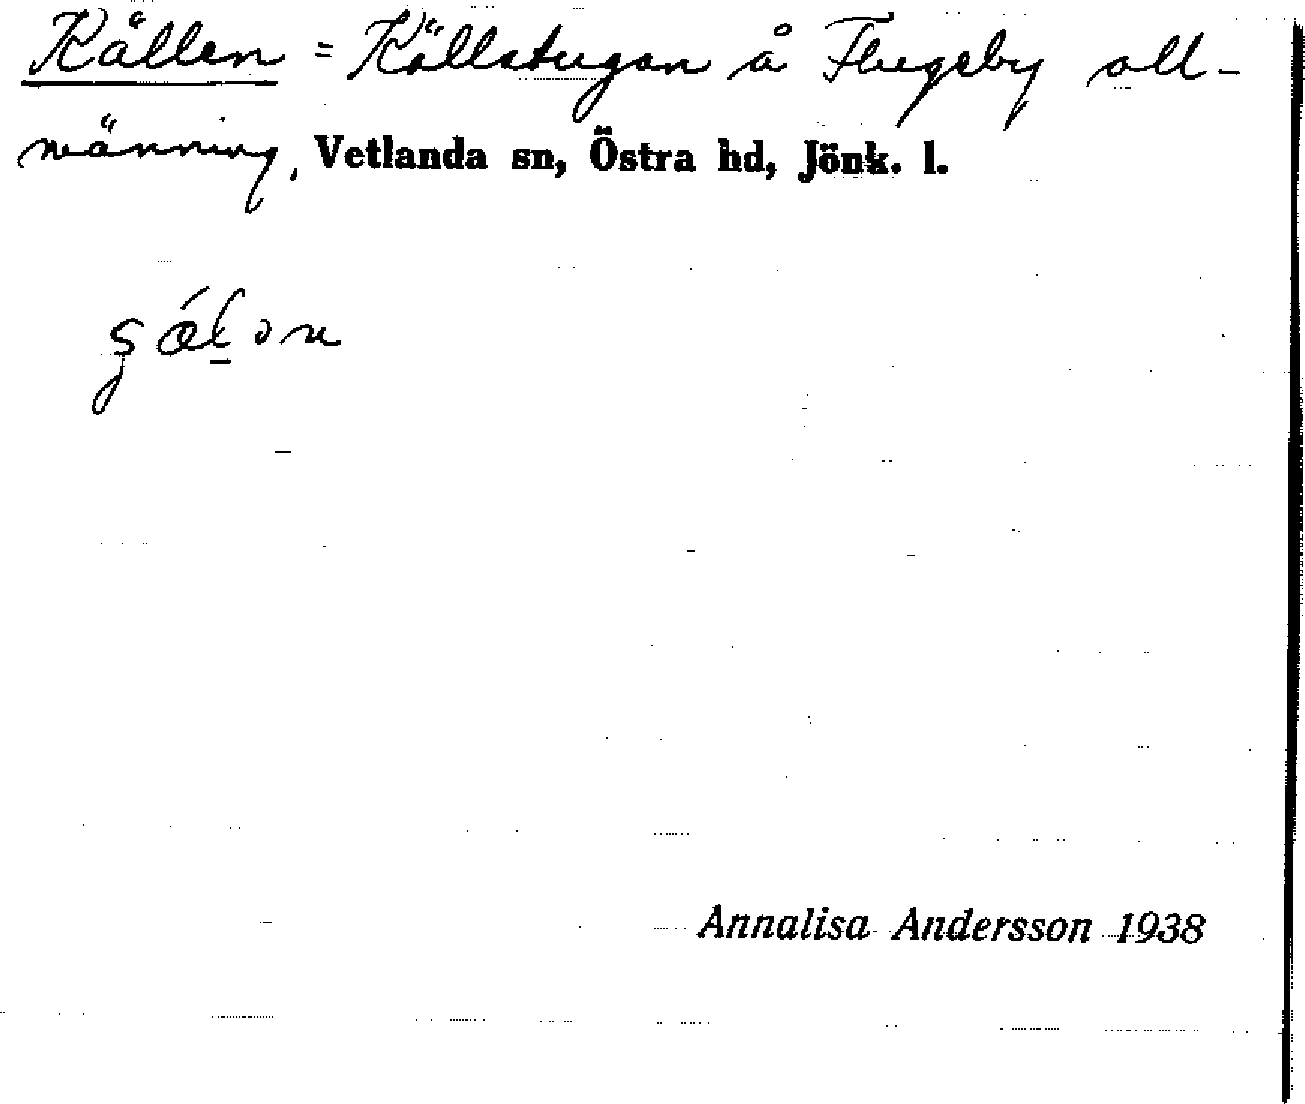 Källen = Källstugan å Flugeby all-
männing, Vetlanda sn, Östra hd, Jönk. l.
Annalisa Andersson 1938